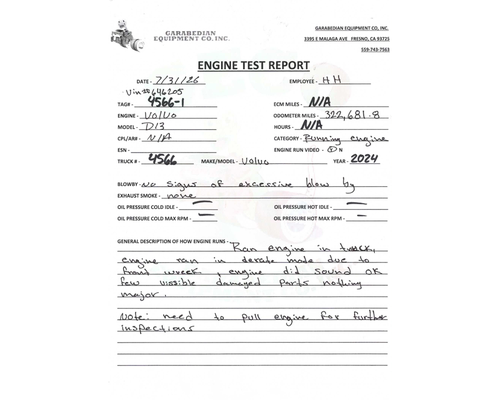 GARABEDIAN
EQUIPMENT CO, INC.
GARABEDIAN EQUIPMENT CO, INC.
3395 E MALAGA AVE FRESNO, CA 93725
559-743-7563
ENGINE TEST REPORT
DATE - 7/31/26 EMPLOYEE - HH
Vin## 646205
TAG# 4566-1 ECM MILES - N/A
ENGINE - Volvo ODOMETER MILES - 322,681.8
MODEL - D13 HOURS - N/A
CPL/AR# - N/A CATEGORY - Running engine
ESN - ENGINE RUN VIDEO - Y N
TRUCK # - 4566 MAKE/MODEL - Volvo YEAR - 2024
BLOWBY - No signs of excessive blow by
EXHAUST SMOKE - none
OIL PRESSURE COLD IDLE - — OIL PRESSURE HOT IDLE - —
OIL PRESSURE COLD MAX RPM - — OIL PRESSURE HOT MAX RPM - —
GENERAL DESCRIPTION OF HOW ENGINE RUNS - Ran engine in truck,
engine ran in derate mode due to
front wreck, engine did sound ok
few vissible damaged parts nothing
major.
Note: need to pull engine for further
Inspections